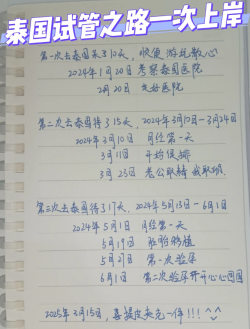 泰国试管之路一次上岸
第一次去泰国呆了10天，顺便游玩散心
2024年1月20日 考察泰国医院
2月20日 交好医院
第二次去泰国待了15天，2024年3月10日－3月24日
2024年3月10日 月经第一天
3月11日 开始促排
3月23日 老公取精 我取卵
第三次去泰国待了17天，2024年5月13日－6月1日
2024年5月1日 月经第一天
5月19日 胚胎移植
5月27日 第一次验孕
6月1日 第二次验孕开开心心回国
2025年3月15日，喜提皮夹克一件!!! ^^